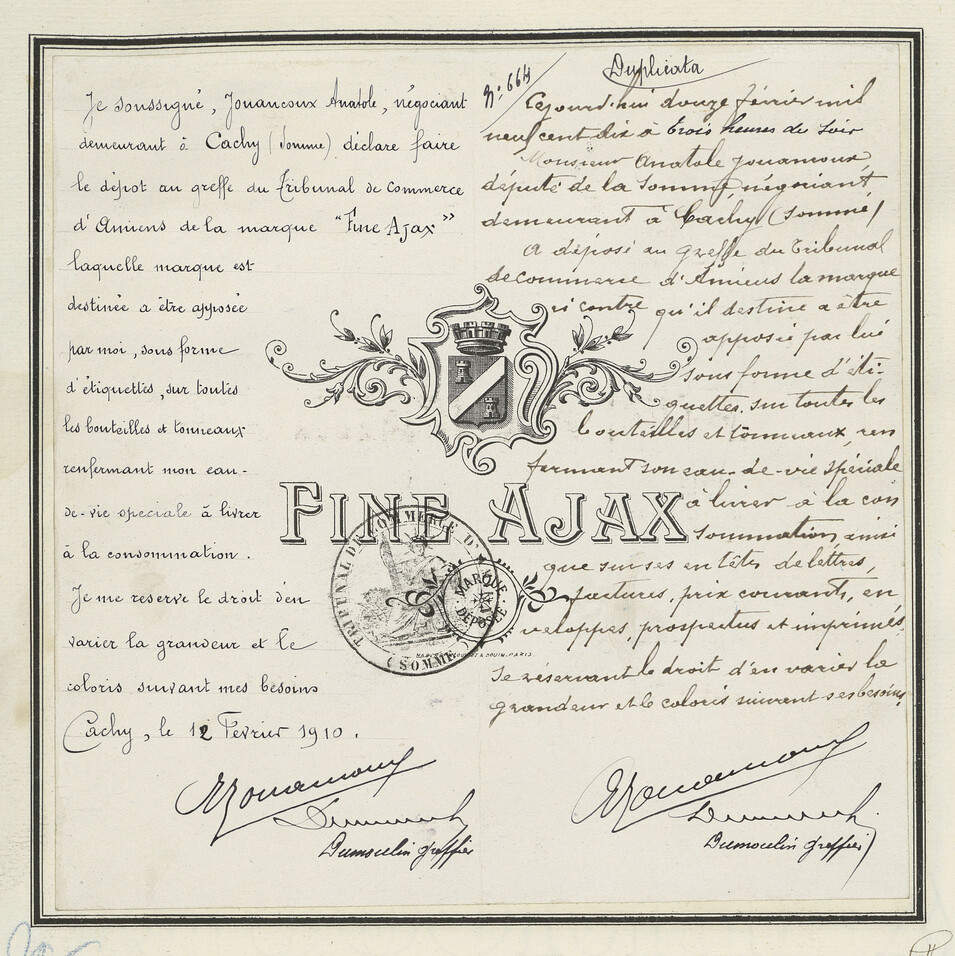 Je soussigné, Jouancoux Anatole, négociant
demeurant à Cachy (Somme) déclare faire
le dépot au greffe du Tribunal de Commerce
d'Amiens de la marque "Fine Ajax"
laquelle marque est
destinée a être apposée
par moi, sous forme
d'étiquettes, sur toutes
les bouteilles et tonneaux
renfermant mon eau-
de-vie speciale à livrer
à la consommation.
Je me reserve le droit d'en
varier la grandeur et le
coloris suivant mes besoins
Cachy, le 12 Février 1910.
AJouancoux
Dumoulin greffier
Duplicata
N° 664
Cejourd'hui douze février mil
neuf cent dix à trois heures du soir
Monsieur Anatole Jouancoux,
député de la Somme, négociant
demeurant à Cachy (Somme)
A déposé au greffe du Tribunal
de commerce d'Amiens la marque
ci contre qu'il destine a être
apposée par lui
sous forme d'éti-
quettes sur toutes les
bouteilles et tonneaux, ren
fermant son eau-de-vie spéciale
à livrer à la con
sommation, ainsi
que sur ses en têtes de lettres,
factures, prix courants, en
veloppes, prospectus et imprimés,
Se réservant le droit d'en varier la
grandeur et le coloris suivant ses besoins,
AJouancoux
Dumoulin greffier
FINE AJAX
TRIBUNAL DE COMMERCE D'
(SOMME)
MARQUE
DÉPOSÉE
& DOUIN, PARIS.